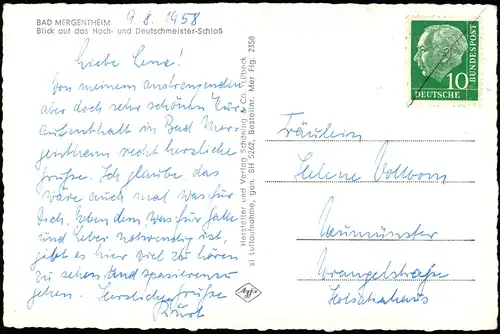 9.8.1958
BAD MERGENTHEIM
Blick auf das Hoch- und Deutschmeister-Schloß
Liebe Lene!
Von meinem anstrengenden
aber doch sehr schönen Kur-
aufenthalt in Bad Mer-
gentheim recht herzliche
Grüße. Ich glaube das
wäre auch mal was für
Dich. Neben dem, was für Galle
und Leber notwendig ist,
gibt es hier viel zu hören
zu sehen und spazieren zu
gehen. Herzliche Grüße
Kurt
Hersteller und Verlag Schöning & Co., Lübeck
si Luftaufnahme, gen. SH 5262, Bestellnr. Mer Flg. 2358
Agfa
10
DEUTSCHE
BUNDESPOST
Fräulein
Helene
Neumünster
Wrangelstraße
Holsatiahaus